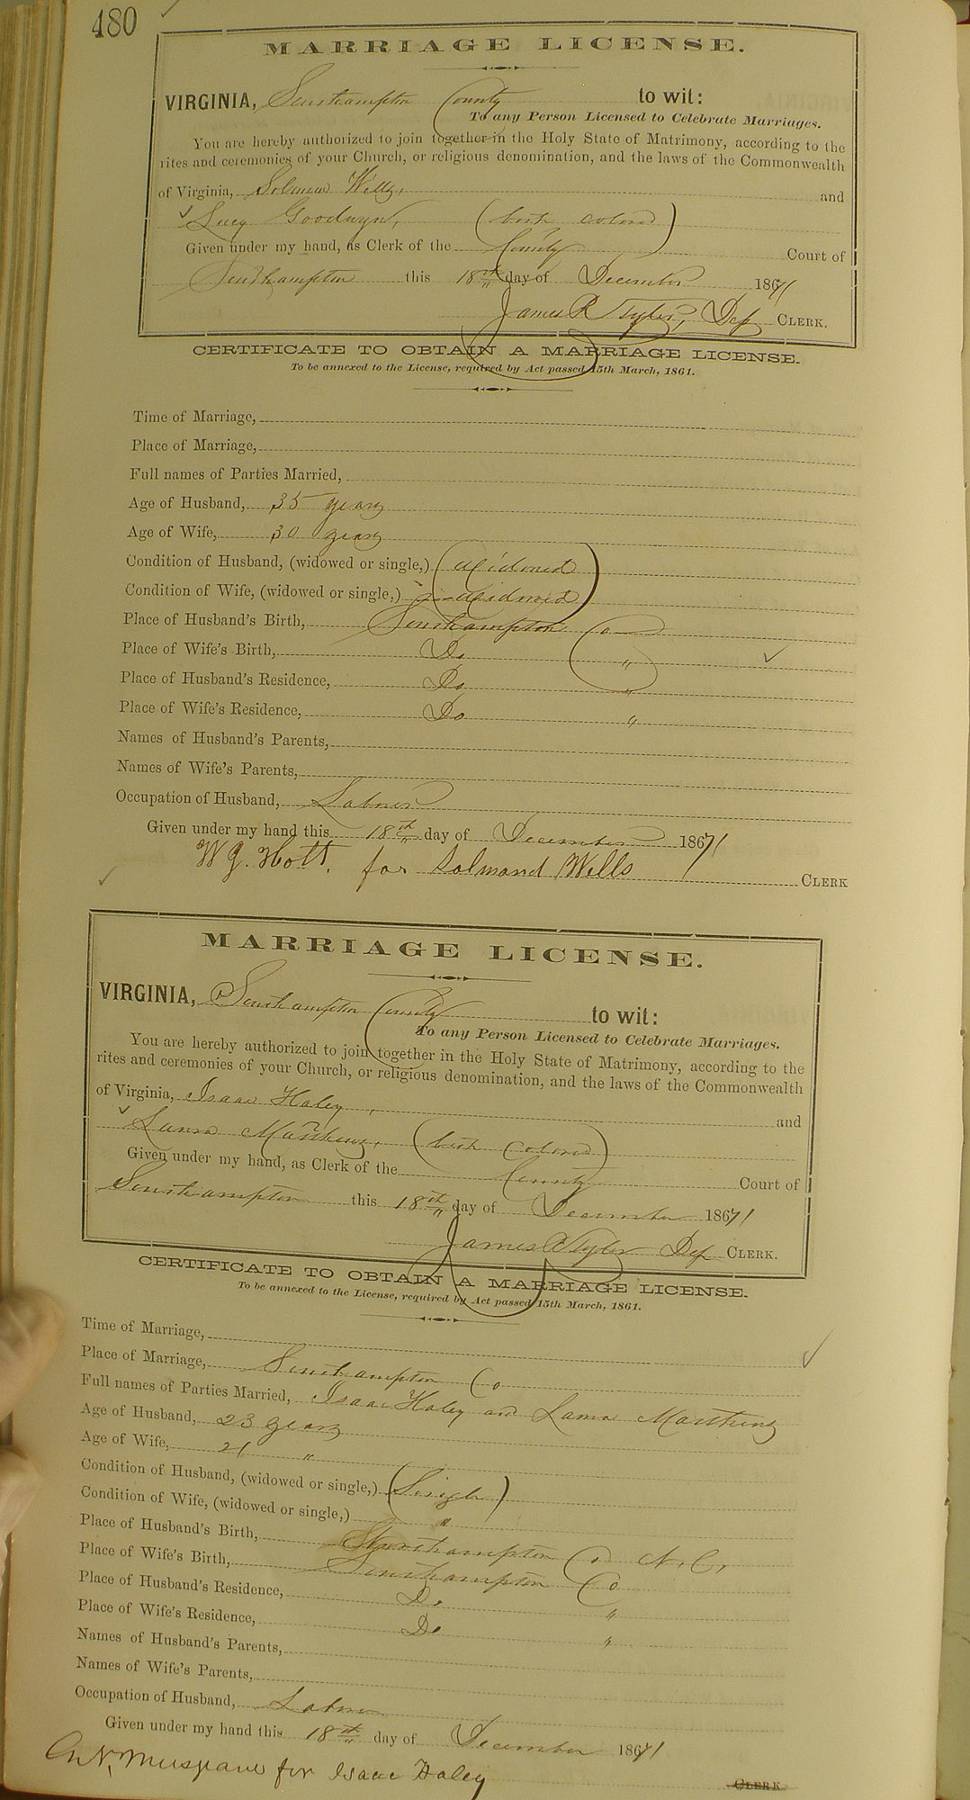 480
MARRIAGE LICENSE.
VIRGINIA, Southampton County to wit:
To any Person Licensed to Celebrate Marriages.
You are hereby authorized to join together in the Holy State of Matrimony, according to the
rites and ceremonies of your Church, or religious denomination, and the laws of the Commonwealth
of Virginia, Wells, and
Lucy Goodwyn, (both colored)
Given under my hand, as Clerk of the County Court of
Southampton this 18th day of December 1871
James R Tyler, Dep CLERK.
CERTIFICATE TO OBTAIN A MARRIAGE LICENSE.
To be annexed to the License, required by Act passed 15th March, 1861.
Time of Marriage,
Place of Marriage,
Full names of Parties Married,
Age of Husband, 35 years
Age of Wife, 30 years
Condition of Husband, (widowed or single,) (Widowed)
Condition of Wife, (widowed or single,) Widowed
Place of Husband's Birth, Southampton Co
Place of Wife's Birth, Do "
Place of Husband's Residence, Do "
Place of Wife's Residence, Do "
Names of Husband's Parents,
Names of Wife's Parents,
Occupation of Husband, Laborer
Given under my hand this 18th day of December 1871
W J. Holt. for Solmond Wells CLERK
MARRIAGE LICENSE.
VIRGINIA, Southampton County to wit:
To any Person Licensed to Celebrate Marriages.
You are hereby authorized to join together in the Holy State of Matrimony, according to the
rites and ceremonies of your Church, or religious denomination, and the laws of the Commonwealth
of Virginia, Isaac Haley, and
Laura Matthews, (both colored)
Given under my hand, as Clerk of the County Court of
Southampton this 18th day of December 1871
James R Tyler Dep CLERK.
CERTIFICATE TO OBTAIN A MARRIAGE LICENSE.
To be annexed to the License, required by Act passed 15th March, 1861.
Time of Marriage,
Place of Marriage, Southampton Co
Full names of Parties Married, Isaac Haley and Laura Matthews
Age of Husband, 23 years
Age of Wife, 21 "
Condition of Husband, (widowed or single,) (Single)
Condition of Wife, (widowed or single,) "
Place of Husband's Birth, Northampton Co N.C.
Place of Wife's Birth, Southampton Co
Place of Husband's Residence, Do "
Place of Wife's Residence, Do "
Names of Husband's Parents,
Names of Wife's Parents,
Occupation of Husband, Laborer
Given under my hand this 18th day of December 1871
Musgrave for Isaac Haley CLERK